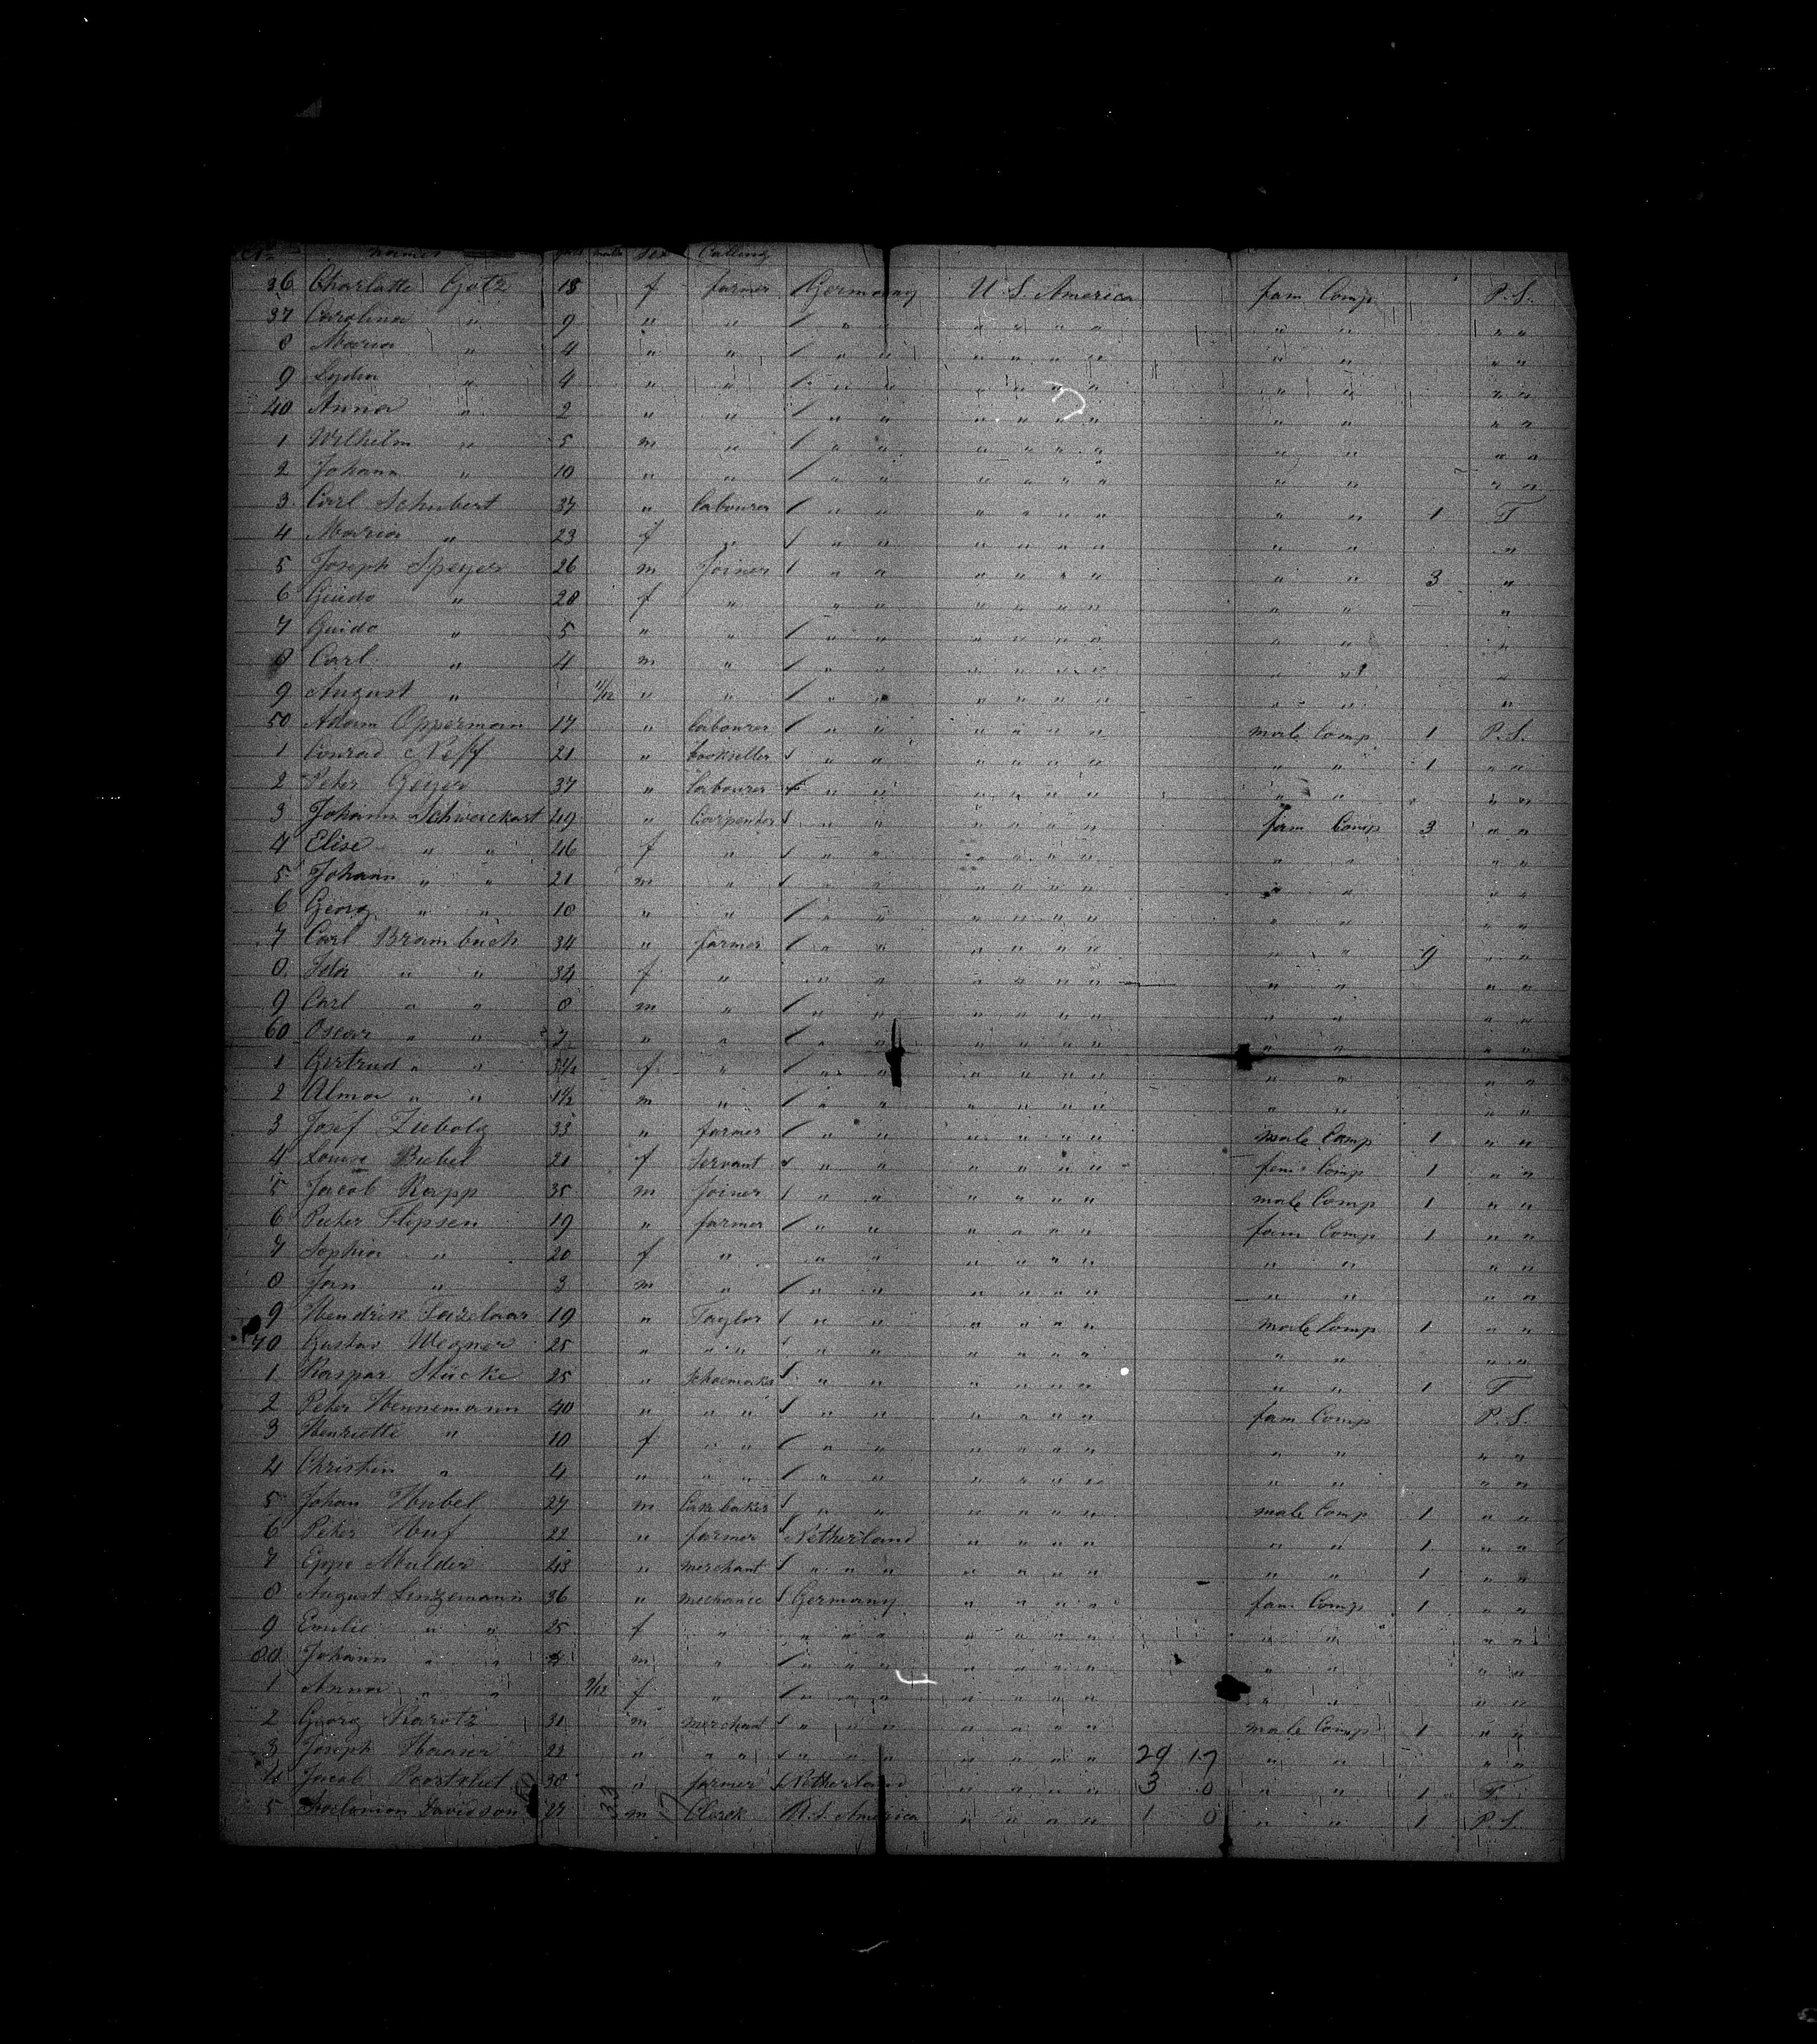 No names years months Sex Calling
36 Charlotte Gotz 18 f farmer Germany U S. America fam Comp P. S.
37 Carolina " 9 " " / " " " " " " " " " "
8 Maria " 4 " " / " " " " " " " " " "
9 Lydia " 4 " " / " " " " " " " " " "
40 Anna " 2 " " / " " " " " " " " " "
1 Wilhelm " 5 m " / " " " " " " " " " "
2 Johann " 10 " " / " " " " " " " " " "
3 Carl Schubert 37 " labourer / " " " " " " " " 1 T
4 Maria " 23 f " / " " " " " " " " "
5 Joseph Speyer 26 m Joiner / " " " " " " " " 3 "
6 Guido " 28 f " " " " " " " " " "
7 Guido " 5 " " / " " " " " " " " "
8 Carl " 4 m " / " " " " " " " " "
9 August " 11/12 " " / " " " " " " " " "
50 Adam Opperman 17 " labourer / " " " " " " male Comp 1 P. S.
1 Conrad Neff 21 " bookseller / " " " " " " " " 1 " "
2 Peter Geyer 37 " labourer / " " " " " " " " " "
3 Johann Schweickart 49 " Carpenter / " " " " " " fam Comp 3 " "
4 Elise " " 46 f " / " " " " " " " " " "
5 Johann " " 21 m " / " " " " " " " " " "
6 Georg " " 18 " " / " " " " " " " " " "
7 Carl Brambach 34 " farmer / " " " " " " " " 9 " "
8 Ida " " 34 f " " " " " " " " " " "
9 Carl " " 8 m " / " " " " " " " " " "
60 Oscar " " 7 " " / " " " " " " " " " "
1 Gertrud " " 3 1/2 f " / " " " " " " " " " "
2 Alma " " 1 1/2 m " / " " " " " " " " " "
3 Josef Liebolz 33 " farmer / " " " " " " male Comp 1 " "
4 Louise Bubel 21 f Servant / " " " " " " fem Comp 1 " "
5 Jacob Rapp 35 m Joiner / " " " " " " male Comp 1 " "
6 Pieter Flipsen 19 " farmer / " " " " " " fam Comp 1 " "
7 Sophia " 20 f " " " " " " " " " " "
8 Jan " 3 m " / " " " " " " " " " "
9 Hendrik Tazelaar 19 " Taylor / " " " " " " male Comp 1 " "
70 Gustav Wegner 25 " " " / " " " " " " " " " "
1 Kaspar Stücke 25 " Schoemaker / " " " " " " " " 1 T
2 Peter Hennemann 40 " " " / " " " " " " fam Comp P. S.
3 Henriette " 10 f " " / " " " " " " " " " "
4 Christin " 4 " " " / " " " " " " " " " "
5 Johan Hubel 27 m Cakebaker / " " " " " " male Comp 1 " "
6 Peter Huf 22 " farmer / Netherland " " " " " " 1 " "
7 Eppe Mulder 43 " merchant / " " " " " " " " " 1 " "
8 August Linzemann 36 " mechanic / Germany " " " " fam Comp 1 " "
9 Emilie " " 25 f " " " " " " " " " " " "
80 Johann " " 4 m " / " " " " " " " " " " "
1 Anna " " 9/12 f " / " " " " " " " " " " "
2 Georg Karotz 31 m merchant / " " " " " " " male Comp 1 " "
3 Joseph Hauser 22 " " " / " " " " " " " 29 17 " " " "
4 Jacob Poortvliet 38 " farmer / Netherland " " " " 3 0 " " 1 T
5 Davidson 27 33 m 17 Clerck U. S. America " " " " 1 0 " " 1 P. S.